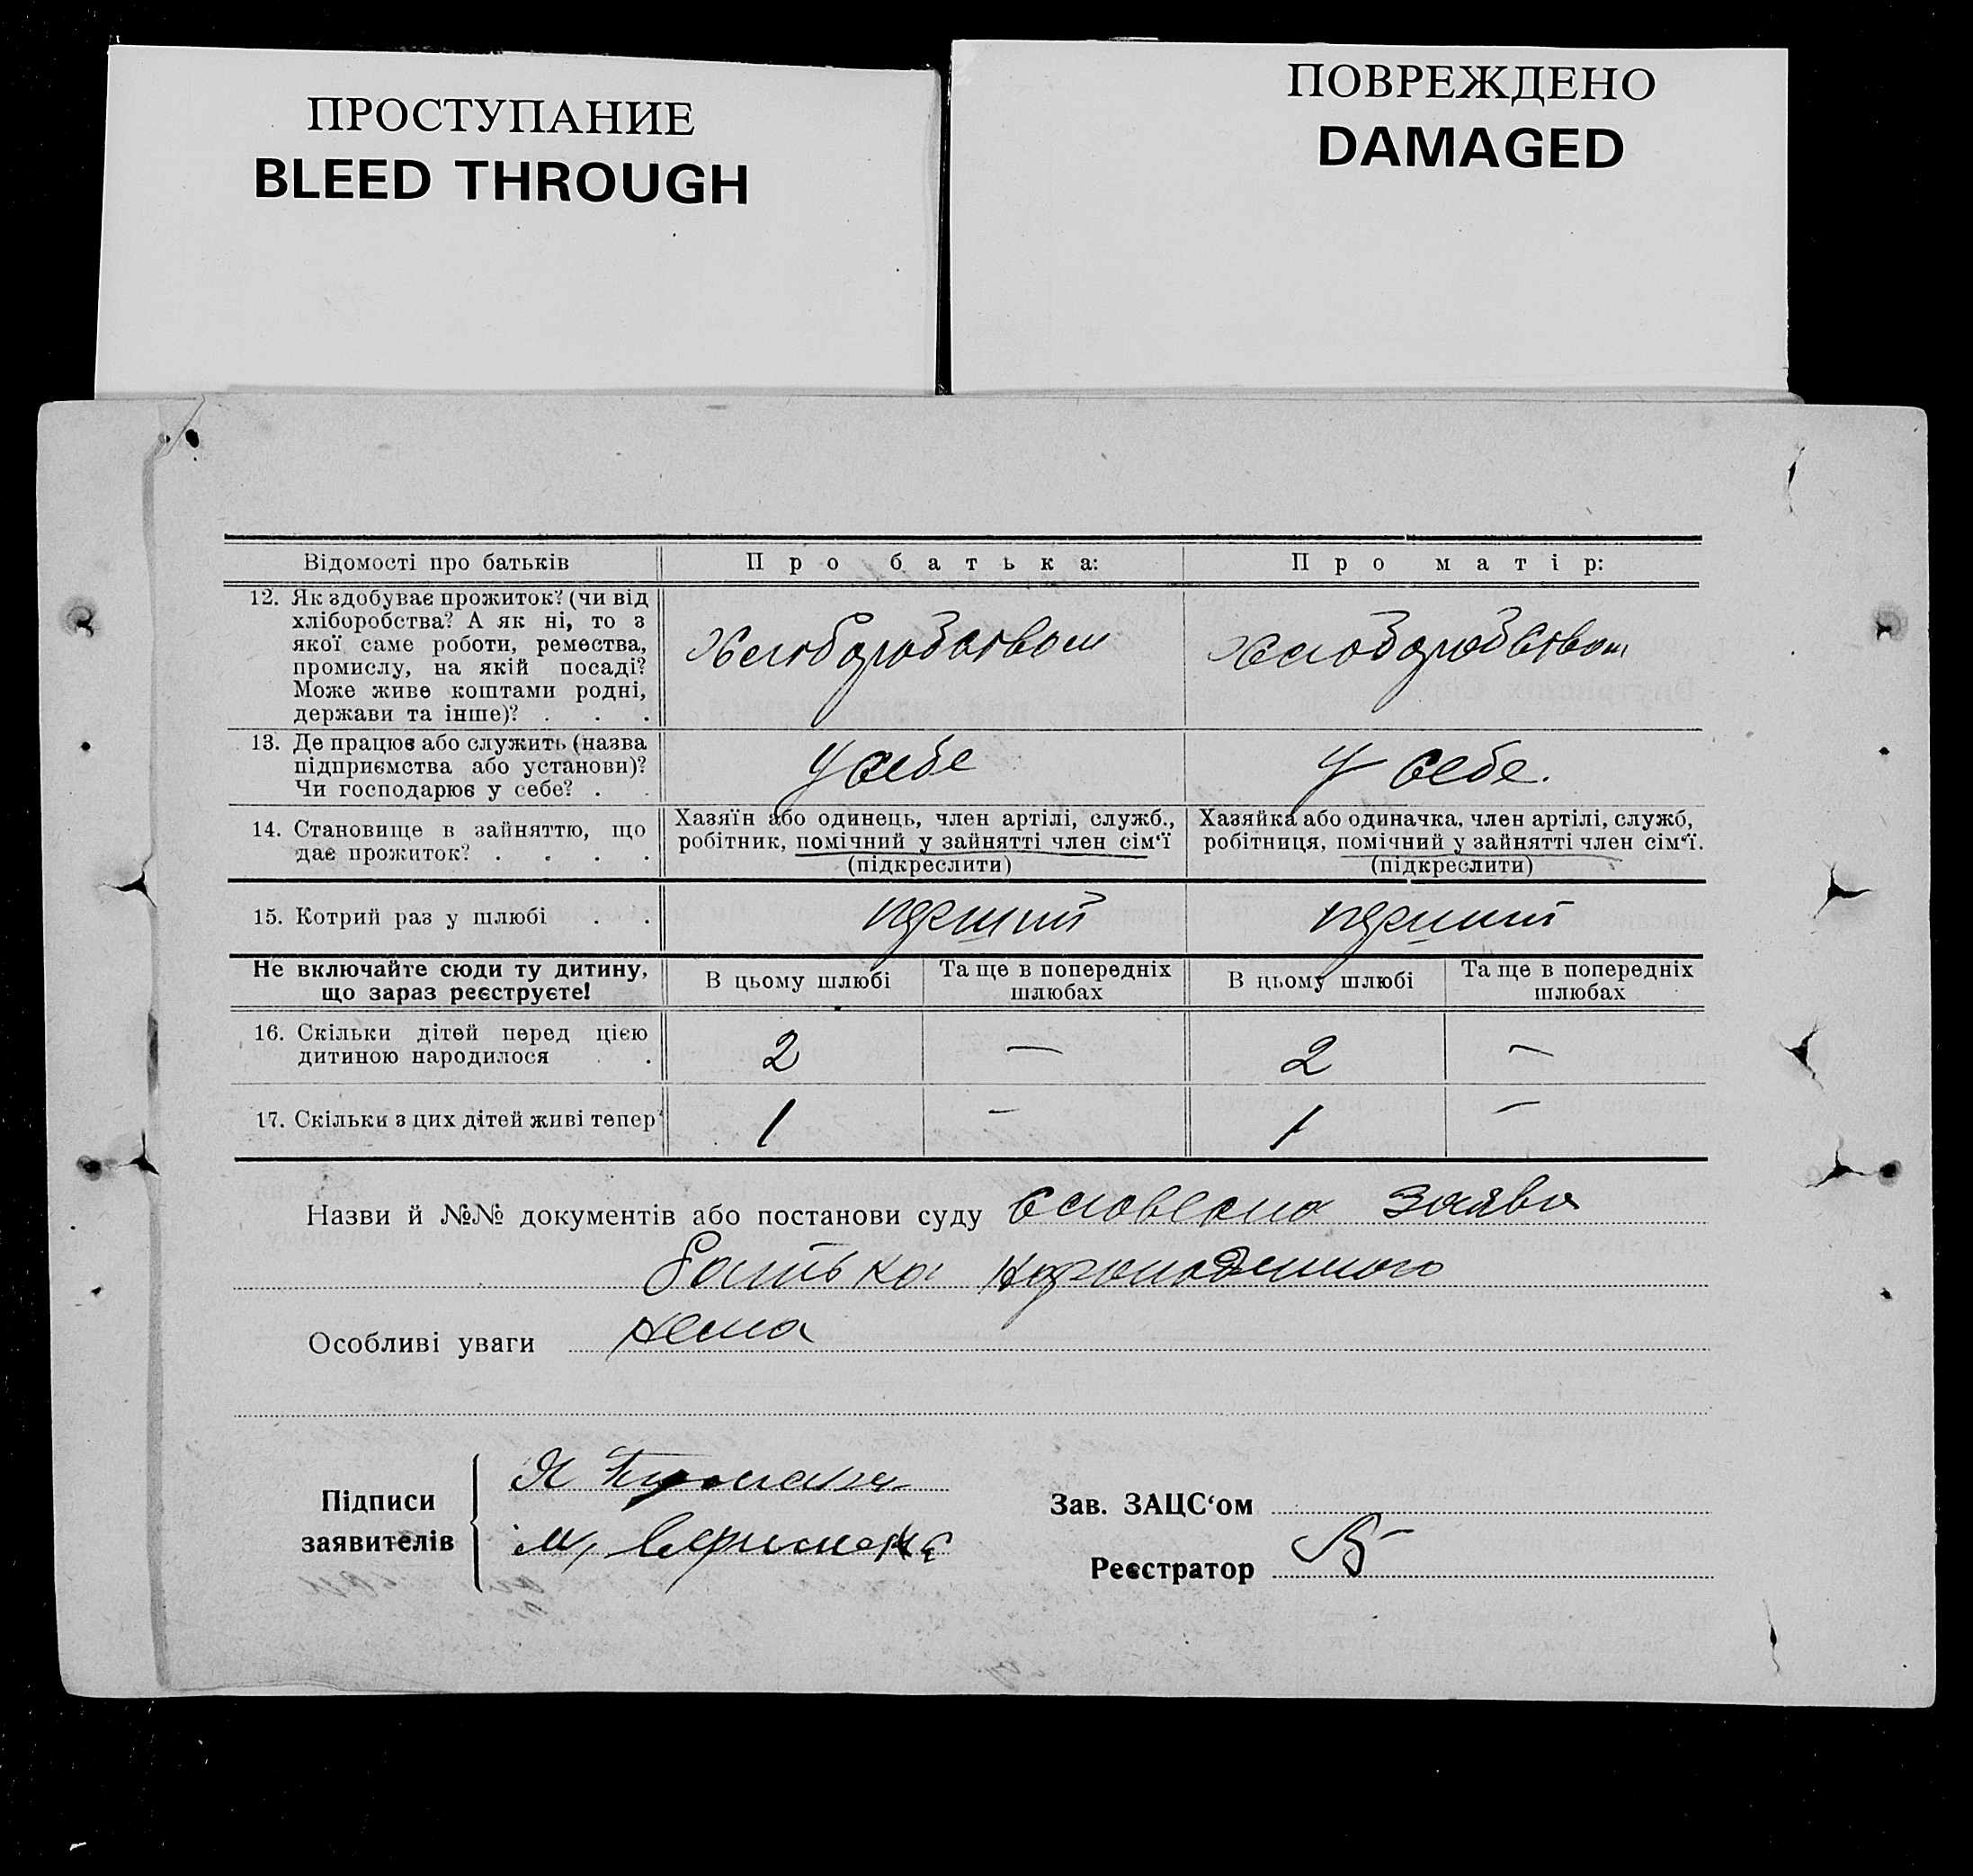 ПРОСТУПАНИЕ
BLEED THROUGH
ПОВРЕЖДЕНО
DAMAGED
Відомості про батьків
Про батька:
Про матір:
12. Як здобуває прожиток? (чи від
хліборобства? А як ні, то з
якої саме роботи, ремества,
промислу, на якій посаді?
Може живе коштами родні,
держави та інше)? . . .
Хліборобством
Хліборобством
13. Де працює або служить (назва
підприємства або установи)?
Чи господарює у себе? . .
У себе
У себе.
14. Становище в зайняттю, що
дає прожиток? . . . .
Хазяїн або одинець, член артілі, служб.,
робітник, помічний у зайнятті член сім‘ї
(підкреслити)
Хазяйка або одиначка, член артілі, служб,
робітниця, помічний у зайнятті член сім‘ї.
(підкреслити)
15. Котрий раз у шлюбі . .
перший
перший
Не включайте сюди ту дитину,
що зараз реєструєте!
В цьому шлюбі
Та ще в попередніх
шлюбах
В цьому шлюбі
Та ще в попередніх
шлюбах
16. Скільки дітей перед цією
дитиною народилося . .
2
—
2
—
17. Скільки з цих дітей живі тепер
1
—
1
—
Назви й №№ документів або постанови суду словесна заява
батька
Особливі уваги нема
Підписи
заявителів
Зав. ЗАЦС‘ом
Реєстратор